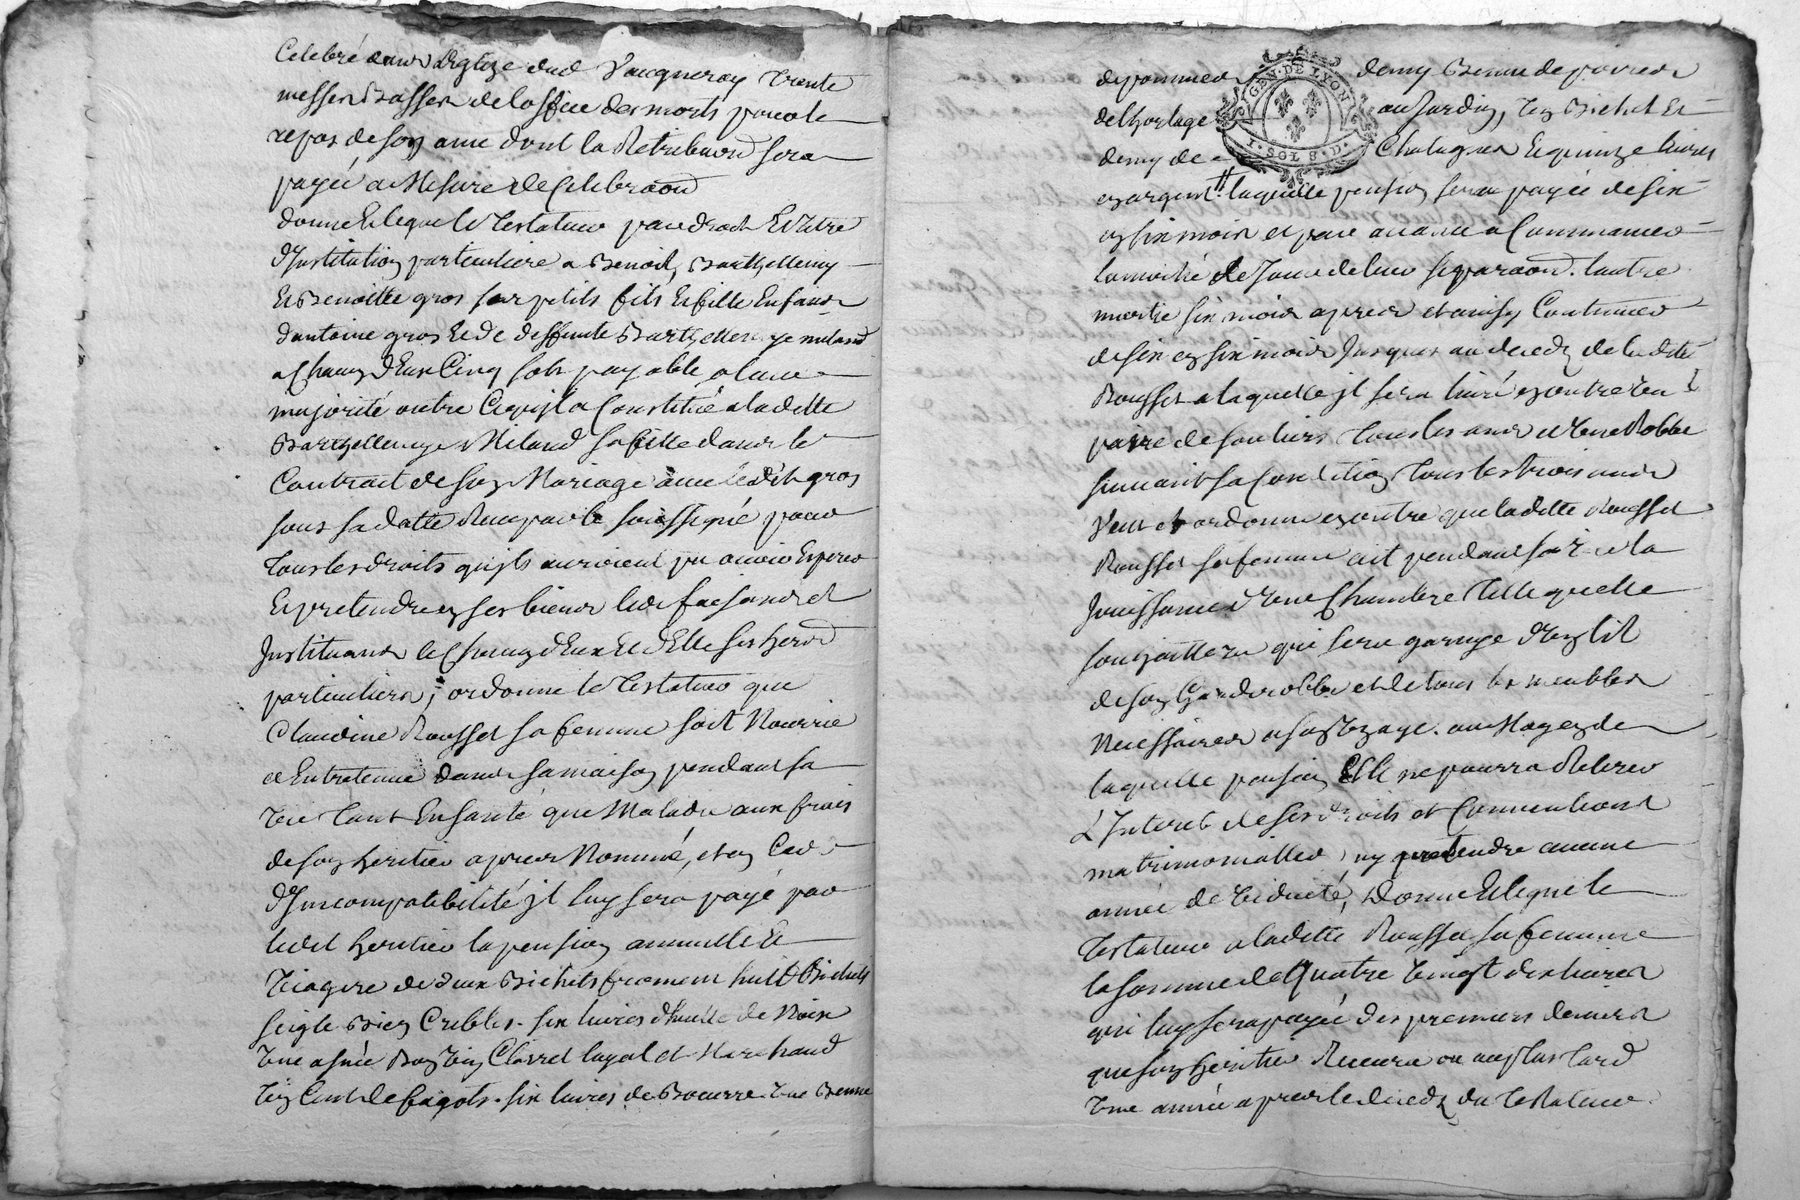 Celebré dans L'Eglize dud Vaugneray trente
messes Basses de l'office des morts pour le
repos de son ame dont la Retribuon sera
payée a Mesure de Celebraon
donne & legue le Testateur par droit & titre
d'Institution particuliere a Benoit, Barthellemy
& Benoitte gros ses petits fils & fille Enfans
d'antoine gros & de deffunte Barthellemye miland
a Chacun d'Eux Cinq sols payable a leur
majorité outre Ce qu'il a Constitué a ladette
Barthellemye Miland sa fille dans le
Contrait de son Mariage avec ledit gros
sous sa datte Reçu par le soussigné pour
tous les droits qu'ils auroient pu avoir Esperer
& pretendre en ses biens les faisant et
Instituant le Chacun d'Eux & d'Elle ses hers
particuliers; ordonne le Testateur que
Claudine Rousset sa femme soit Nourrie
et Entretenue dans sa maison pendant sa
vie tant En santé que Maladie aux frais
de son heritier apres Nommé, et en Cas
d'Incompatibilité jl luy sera payé par
ledit heritier la pension annuelle &
viagere de deux Bichets froment huit Bichets
seigle Bien Criblés. six livres d'huille de Noix
une asnée Bon vin Clairet loyal et Marchand
un Cent de fagots. six livres de Beurre. une Benne
de pommes demy Benne de poires
de l'horlage au Jardin, un Bichet et
demy de Chatagnes & quinze livres
en argent laquelle pension sera payée de six
en six mois et par avance a Commancer
la moitié de Jour de leur separaon. l'autre
moitié six mois apres et ainsy Continuer
de six en six mois Jusques au decedz de ladite
Rousset a laquelle jl sera livré en outre un
paire de souliers tous les ans et une Robbe
suivant sa Condition tous les trois ans
Veut et ordonne en outre que ladette Rousset
Rousset sa femme ait pendant sa vie la
Jouissance d'une Chambre telle quelle
souhaittera qui sera garnye d'un lit
de son Garderobbe et de tous les meubles
Necessaires a son uzage. au Moyen de
laquelle pension Elle ne pourra Retirer
L'Interet de ses droits et Conventions
matrimonialles, ny pretendre aucune
année de viduité, Donne & legue le
Testateur a ladette Rousset sa femme
la somme de Quatre vingt dix livres
qui luy sera payée des premiers deniers
que son heritier Recevra ou au plus tard
une année apres le decedz du Testateur.
GEN. DE LYON
1. SOL 8. D.